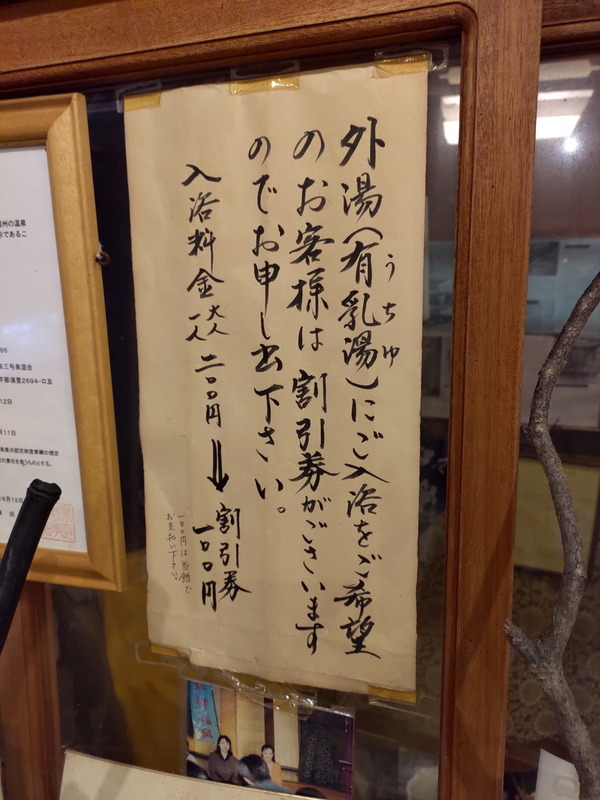 外湯(有乳湯)にご入浴をご希望
うちゆ
のお客様は割引券がございます
のでお申し出下さい。
入浴料金大人一人二〇〇円⇒割引券一〇〇円
一〇〇円は当館で
お支払い下さい。
州の温泉
であるこ
86
三号泉混合
2694-ロ及
12日
月11日